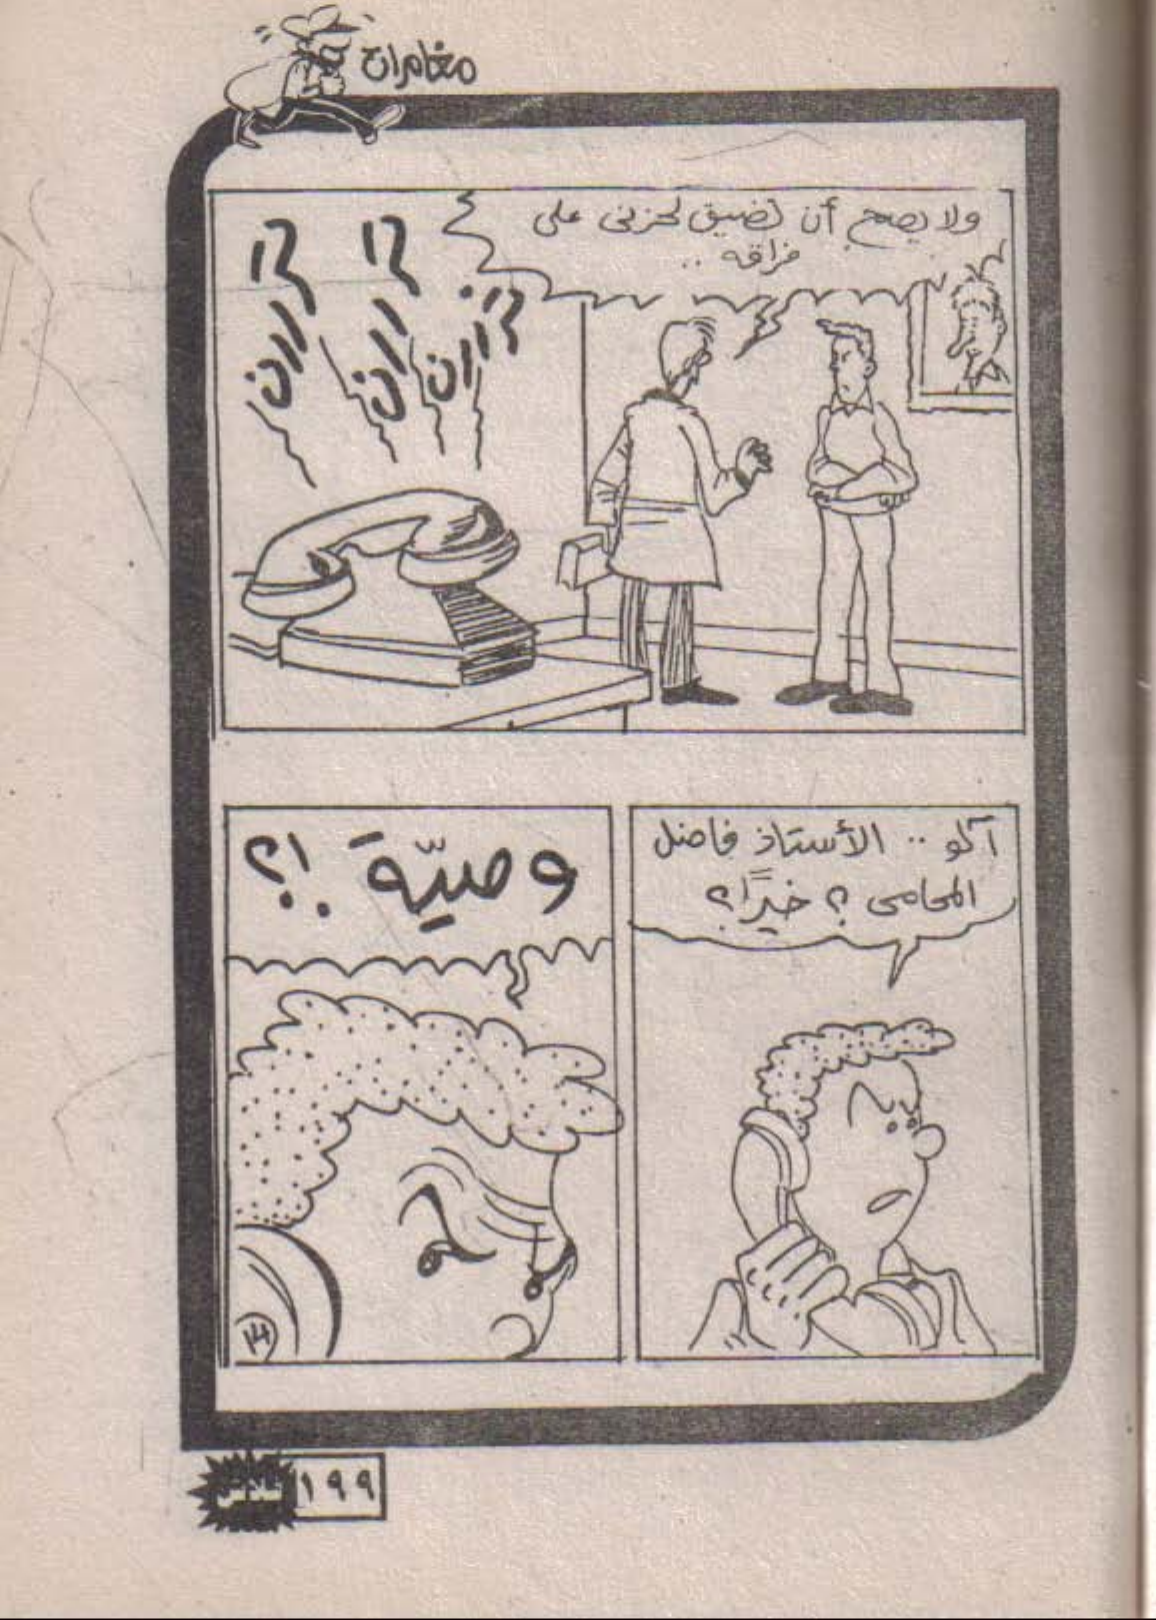 مغامرات
ولا يصح أن تضيق لحزنى على
فراقه ..
ترررن
ترررن
ترررن
آلو .. الأستاذ فاضل
المحامى ؟ خيرًا؟
وصيّة !؟
فلاش
١٩٩